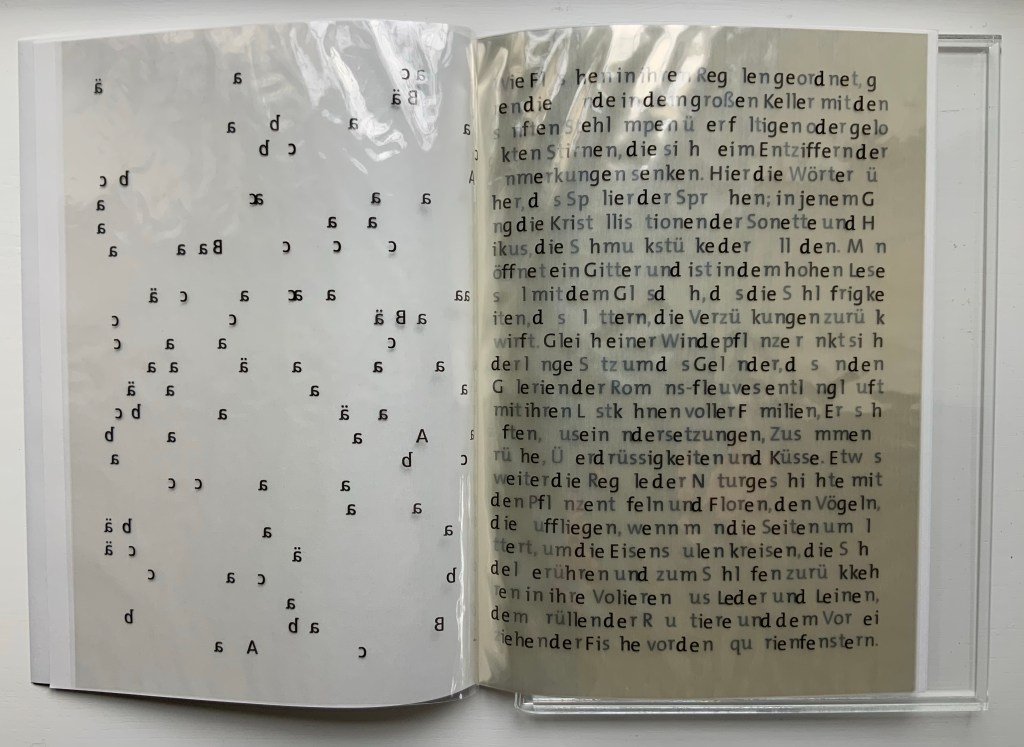 ä a c a
ä B
a b a a
b c
c b A
a ac a a
a a a
a a a B c c c
ä c a ac a aa
c c ä B a
c a a c
a a ä a a a
ä a a a
c b a ä a
b a a A
a b c
c c a a
a a
ä b a a
ä c ä
c a c b
a
b b a B
a A c
wie Fl s hen in ihren Reg len geordnet, g
en die rde in dem großen Keller mit den
s nften Stehl mpen ü er f ltigen oder gelo
kten Stirnen, die si h eim Entziffern der
nmerkungen senken. Hier die Wörter ü
her, d s Sp lier der Spr hen; in jenem G
ng die Krist llis tionen der Sonette und H
ikus, die S hmu kstü ke der ll den. M n
öffnet ein Gitter und ist in dem hohen Lese
s l mit dem Gl sd h, d s die S hl frigke
iten, d s l ttern, die Verzü kungen zurü k
wirft. Glei h einer Windepfl nze r nkt si h
der l nge S tz um d s Gel nder, d s n den
G lerien der Rom ns-fleuves entl ng l uft
mit ihren L stk hnen voller F milien, Er s h
ften, usein ndersetzungen, Zus mmen
rü he, Ü erdrüssigkeiten und Küsse. Etw s
weiter die Reg le der N turges hi hte mit
den Pfl nzent feln und Floren, den Vögeln,
die uffliegen, wenn m n die Seiten um l
ttert, um die Eisens ulen kreisen, die S h
del erühren und zum S hl fen zurü kkeh
ren in ihre Volieren us Leder und Leinen,
dem rüllen der R u tiere und dem Vor ei
ziehen der Fis he vor den qu rienfenstern.